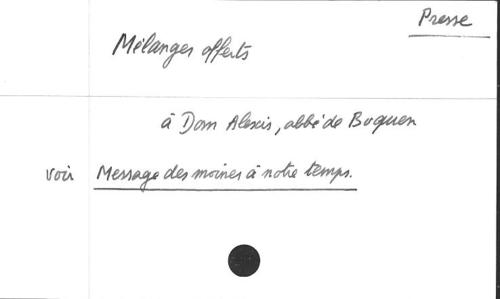 Presse
Mélanges offerts
à Dom Alexis, abbé de Boquen
voir Message des moines à notre temps.